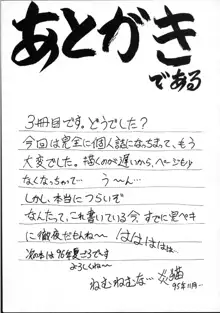 あとがき
である
3冊目です。どうでした?
今回は完全に個人誌になっちまって、もう
大変でした。描くのが遅いから、ページもツ
なくなっちゃって… う〜ん…
しかし、本当につらいぞ
なんたって、これ書いている今、すでに完ペキ
に徹夜だもんね〜 ハハハハハ…
次の本は'96年夏ごろです
よろしくね〜
ねむねむな… 炎猫
'95年11月…